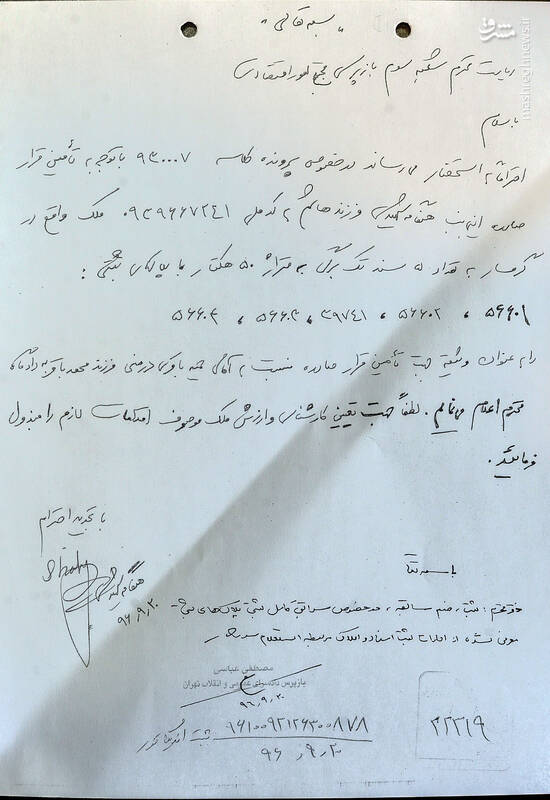 مشرق
mashreghnews.ir
"بسمه تعالی"
ریاست محترم شعبه سوم بازپرسی مجتمع امور اقتصادی
با سلام
احتراماً به استحضار می رساند در خصوص پرونده کلاسه ۹۳۰۰۰۷ با توجه به تأمین قرار
صادره اینجانب هنگامه فرزند هاشم به کد ملی ۰۹۳۹۶۶۷۲۴۱ ملک واقع در
گرمسار به تعداد ۵ سند تک برگی به متراژ ۵۰ هکتار با پلاکهای ثبتی :
۵۶۶۰۱ ، ۵۶۶۰۲ ، ۳۹۷۴۱ ، ۵۶۶۰۳ ، ۵۶۶۰۴
را به عنوان وثیقه جهت تأمین قرار صادره نسبت به آقای باقری درمنی فرزند محمدباقر به دادگاه
محترم اعلام می نمایم . لطفاً جهت تعیین کارشناس وارزش ملک موصوف اقدامات لازم را مبذول
فرمائید .
با تجدید احترام
هنگامه
۹۶،۹،۲۰
باسمه تعالی
دفتر محترم : ثبت، ضم سابقه ، در خصوص کامل ثبتی پلاک‌های
معرفی شده از اداره ثبت اسناد و املاک مربوطه استعلام
مصطفی عباسی
بازپرس دادسرای عمومی و انقلاب تهران
۹۶،۹،۲۰
۹۶۱۰۰۹۲۱۲۶۳۰۰۸۷۸
ثبت گردید
۹۶،۹،۲۰
۴۲۲۱۹